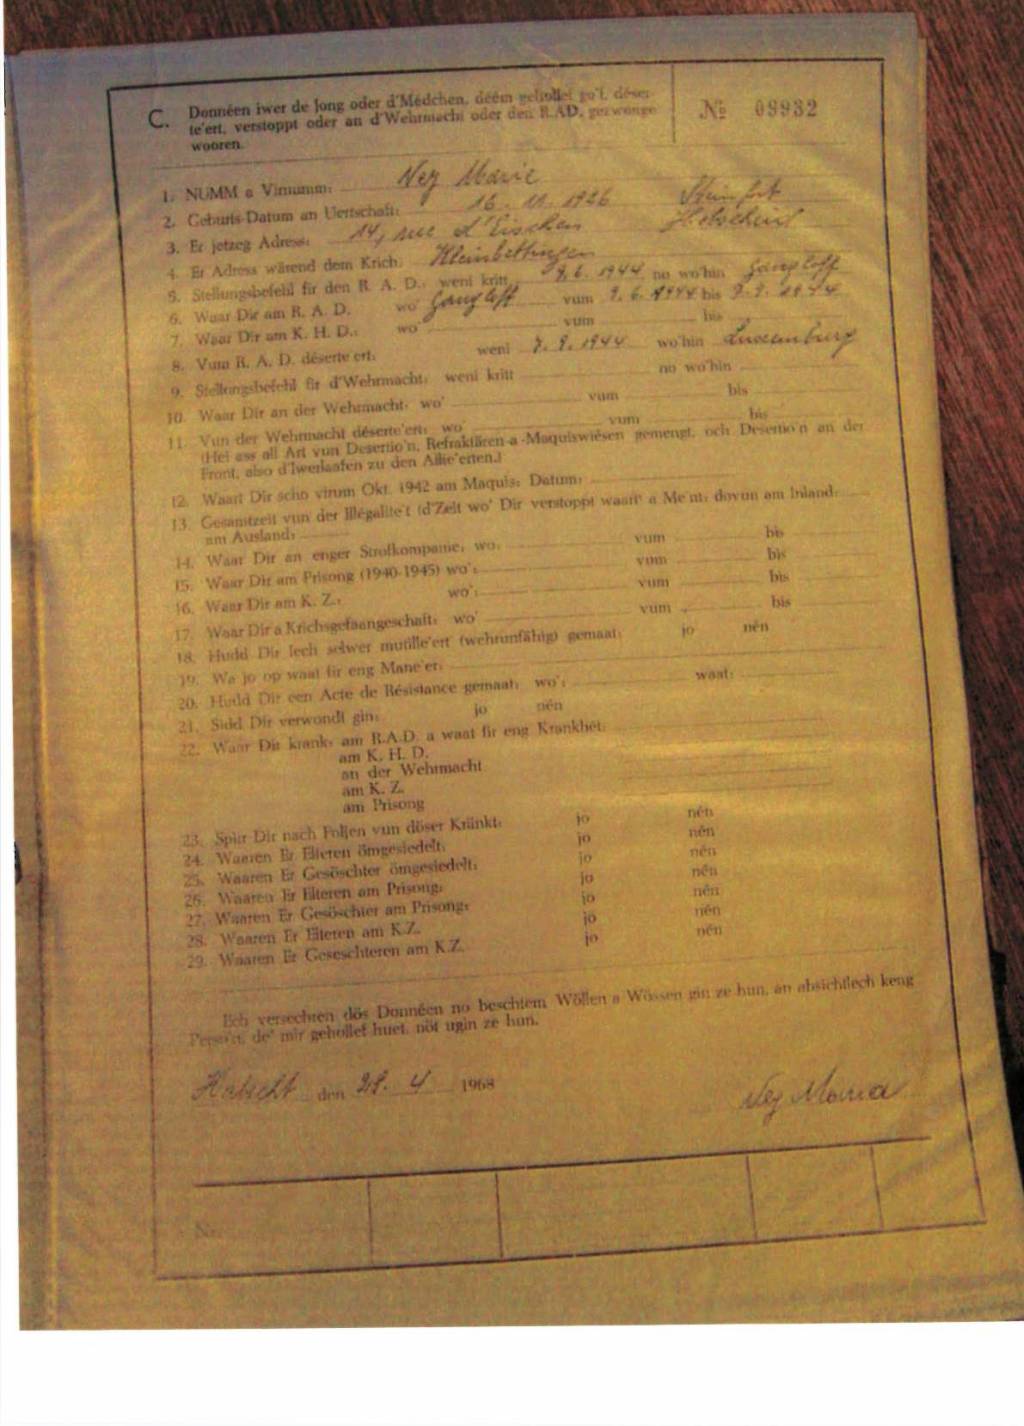 C. Donnéen iwer de Jong oder d'Mëdchen, déem gehollef go'f, déser-
te'ert, verstoppt oder an d'Wehrmacht oder den R.AD. gezwonge
wooren.
№ 08932
1. NUMM a Virnumm: Ney Marie
2. Geburts-Datum an Uertschaft: 16. 11. 1926 Steinfort
3. Er jetzeg Adress: 14, rue d'Eischen
4. Er Adress wärend dem Krich: Kleinbettingen
5. Stellungsbefehl fir den R. A. D.: weni kritt 9.6. 1944 no wo'hin Gangloff
6. Waar Dir am R. A. D. wo' Gangloff vum 9. 6. 1944 bis 7. 9. 1944
7. Waar Dir am K. H. D.: wo' vum bis
8. Vum R. A. D. déserte'ert: weni 7. 9. 1944 wo'hin Luxemburg
9. Stellungsbefehl fir d'Wehrmacht: weni kritt no wo'hin
10. Waar Dir an der Wehrmacht: wo' vum bis
11. Vun der Wehrmacht déserte'ert: wo' vum bis
(Hei ass all Art vun Desertio'n, Refraktären-a-Maquiswiésen gemengt, och Desertio'n an der
Front, also d'Iwerlaafen zu den Allie'erten.)
12. Waart Dir scho virum Okt. 1942 am Maquis: Datum:
13. Gesamtzeit vun der Illégalite't (d'Zeit wo' Dir verstoppt waart) a Me'nt: dovun am Inland:
am Ausland:
14. Waar Dir an enger Strofkompanie: wo: vum bis
15. Waar Dir am Prisong (1940-1945) wo': vum bis
16. Waar Dir am K. Z.: wo': vum bis
17. Waar Dir a Krichsgefaangeschaft: wo' vum bis
18. Hudd Dir Iech selwer mutille'ert (wehrunfähig) gemaat: jo nén
19. Wa jo op waat fir eng Mane'er:
20. Hudd Dir een Acte de Résistance gemaat: wo': waat:
21. Sidd Dir verwondt gin: jo nén
22. Waar Dir krank: am R.A.D. a waat fir eng Krankhét:
am K. H. D.
an der Wehrmacht
am K. Z.
am Prisong
23. Spirt Dir nach Foljen vun döser Kränkt: jo nén
24. Waaren Er Elteren ömgesiedelt: jo nén
25. Waaren Er Gesöschter ömgesiedelt: jo nén
26. Waaren Er Elteren am Prisong: jo nén
27. Waaren Er Gesöschter am Prisong: jo nén
28. Waaren Er Elteren am K.Z. jo nén
29. Waaren Er Geseschteren am K.Z. jo nén
Ech versechten dös Donnéen no beschtem Wöllen a Wössen gin ze hun, an absichtlech keng
Perso'n, de' mir gehollef huet, nöt ugin ze hun.
Habscht den 28. 4 1968
Ney Maria
Nr.